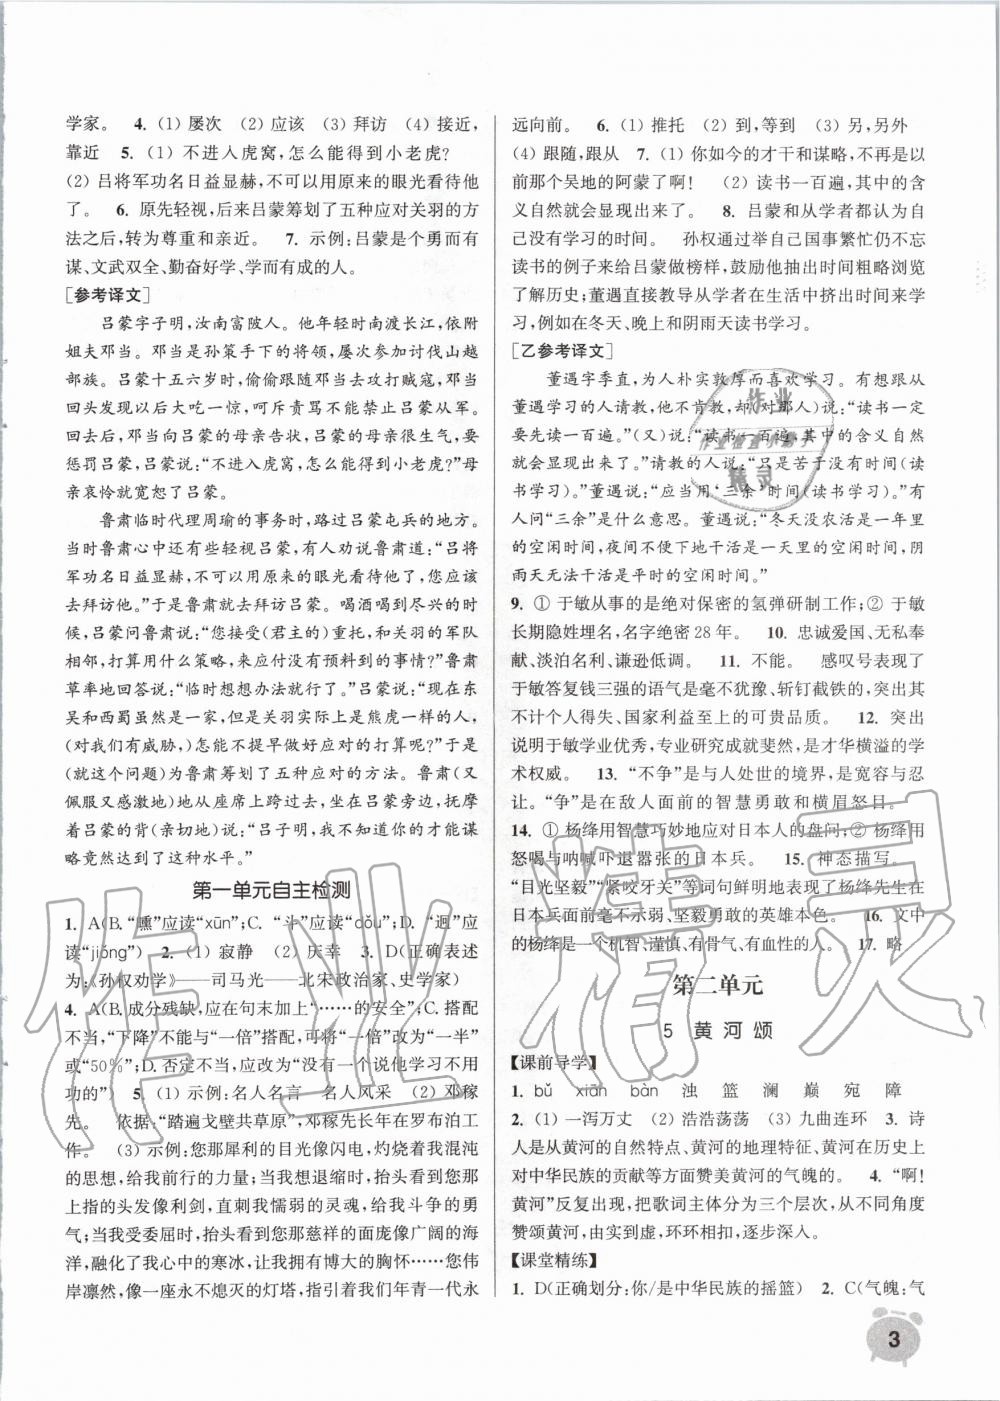 学家。 4. (1) 屡次 (2) 应该 (3) 拜访 (4) 接近，
靠近 5. (1) 不进入虎窝，怎么能得到小老虎?
(2) 吕将军功名日益显赫，不可以用原来的眼光看待他
了。 6. 原先轻视，后来吕蒙筹划了五种应对关羽的方
法之后，转为尊重和亲近。 7. 示例：吕蒙是个勇而有
谋、文武双全、勤奋好学、学以致用的人。
[参考译文]
吕蒙字子明，汝南富陂人。他年轻时南渡长江，依附
姐夫邓当。邓当是孙策手下的将领，屡次参与讨伐山越
部族。吕蒙十五六岁时，偷偷跟着邓当去攻打贼寇，邓当
回头发现以后大吃一惊，呵斥责骂不能禁止吕蒙从军。
回去后，邓当向吕蒙的母亲告状，吕蒙的母亲很生气，要
惩罚吕蒙，吕蒙说：“不进入虎窝，怎么能得到小老虎?”母
亲哀怜他就宽恕了吕蒙。
鲁肃临时代理周瑜的事务时，路过吕蒙屯兵的地方。
当时鲁肃心中还有些轻视吕蒙，有人劝说鲁肃道：“吕将
军功名日益显赫，不可以用原来的眼光看待他了，您应该
去拜访他。”于是鲁肃就去拜访吕蒙。喝酒喝到尽兴的时
候，吕蒙问鲁肃说：“您接受(君主的)重托，和关羽的军队
相邻，打算用什么策略，来应付没有预料到的事情?”鲁肃
草率地回答说：“临时想想办法就行了。”吕蒙说：“现在东
吴和西蜀虽然是一家，但是关羽实际上是熊虎一样的人，
(对我们有威胁，)怎能不提早做好应对的打算呢?”于是
(就这个问题)为鲁肃筹划了五种应对的方法。鲁肃(又
佩服又感激地)从座席上跨过去，坐在吕蒙旁边，抚摩
着吕蒙的背(亲切地)说：“吕子明，我不知道你的才能谋
略竟然达到了这种水平。”
第一单元自主检测
1. A(B.“醺”应读“xūn”;C. “斗”应读“dǒu”;D. “迥”应
读“jiǒng”) 2. (1) 寂静 (2) 庆幸 3. D(正确表述
为：《孙权劝学》——司马光——北宋政治家、史学家)
4. A(B.成分残缺，应在句末加上“……的安全”;C.搭配
不当，“下降”不能与“一倍”搭配，可将“一倍”改为“一半”
或“50%”;D.否定不当，应改为“一个人也说他学习不用
功的”) 5. (1) 示例：名人名言 名人风采 (2) 邓稼
先。 依据：“踏遍戈壁共草原”，邓稼先长年在罗布泊工
作。 (3) 示例：您那犀利的目光像闪电，灼烧着我混沌
的思想，给了我前行的力量；当我想退缩时，抬头看到您那
上指的头发像利剑，直刺我懦弱的灵魂，给我斗争的勇
气；当我受委屈时，抬头看到您那慈祥的面庞像广阔的海
洋，融化了我心中的寒冰，让我拥有博大的胸怀……您那
伟岸凛然，像一座永不熄灭的灯塔，指引着我们年青一代永
远向前。 6. (1) 推托 (2) 到，等到 (3) 另，另外
(4) 跟随，跟从 7. (1) 你如今的才干和谋略，不再是以
前的那个吴地的阿蒙了啊! (2) 读书一百遍，其中的
含义自然就会显现出来了。 8. 吕蒙和从学者都认为
没有学习的时间。 孙权通过举自己国事繁忙仍不忘
读书的例子来给吕蒙做榜样，鼓励他抽出时间粗略浏览
了解历史；董遇直接教导从学者在生活中挤出时间来学
习，例如在冬天、晚上和阴雨天读书学习。
[乙参考译文]
董遇字季直，为人朴实敦厚而喜欢学习。有想跟从
董遇学习的人请教，他不肯教，却(对那人)说：“读书一定
要先读一百遍。”(又)说：“读书一百遍，其中的含义自然
就会显现出来了。”请教的人说：“只是苦于没有时间(读
书学习)。”董遇说：“应当用‘三余’时间(读书学习)。”有
人问“三余”是什么意思。董遇说：“冬天没农活是一年里
的空闲时间，夜间不便下地干活是一天里的空闲时间，阴
雨天无法干活是平时的空闲时间。”
9. ① 于敏从事的是绝对保密的氢弹研制工作；② 于敏
长期隐姓埋名，名字绝密 28 年。 10. 忠诚爱国、无私奉
献、淡泊名利、谦逊低调。 11. 不能。 感叹号表现了
于敏答复钱三强的语气是毫不犹豫、斩钉截铁的，突出其
不计个人得失、国家利益至上的可贵品质。 12. 突出
说明于敏学业优秀，专业研究成就斐然，是才华横溢的学
术权威。 13. “不争”是与人处世的境界，是宽容与忍
让。“争”是在敌人面前的智慧勇敢和横眉怒目。
14. ① 杨绛用智慧巧妙地应对日本人的盘问；② 杨绛用
怒喝与呐喊吓退嚣张的日本兵。 15. 神态描写。
“目光坚毅”“紧咬牙关”等词句鲜明地表现了杨绛先生在
日本兵面前毫不示弱、坚毅勇敢的英雄本色。 16. 文中
的杨绛是一个机智、谨慎、有骨气、有血性的人。 17. 略
第二单元
5 黄河颂
【课前导学】
1. bǔ xiān bàn 浊 篮 澜 巅 宛 障
2. (1) 一泻万丈 (2) 浩浩荡荡 (3) 九曲连环 3. 诗
人是从黄河的自然特点、黄河的地理特征、黄河在历史上
对中华民族的贡献等方面赞美黄河的气魄的。 4. “啊!
黄河”反复出现，把歌词主体分为三个层次，从不同角度
赞颂黄河，由实到虚，环环相扣，逐步深入。
【课堂精练】
1. D(正确划分：你/是中华民族的摇篮) 2. C(气魄：气
3
作业
作业检查小助手
精灵
作业精灵